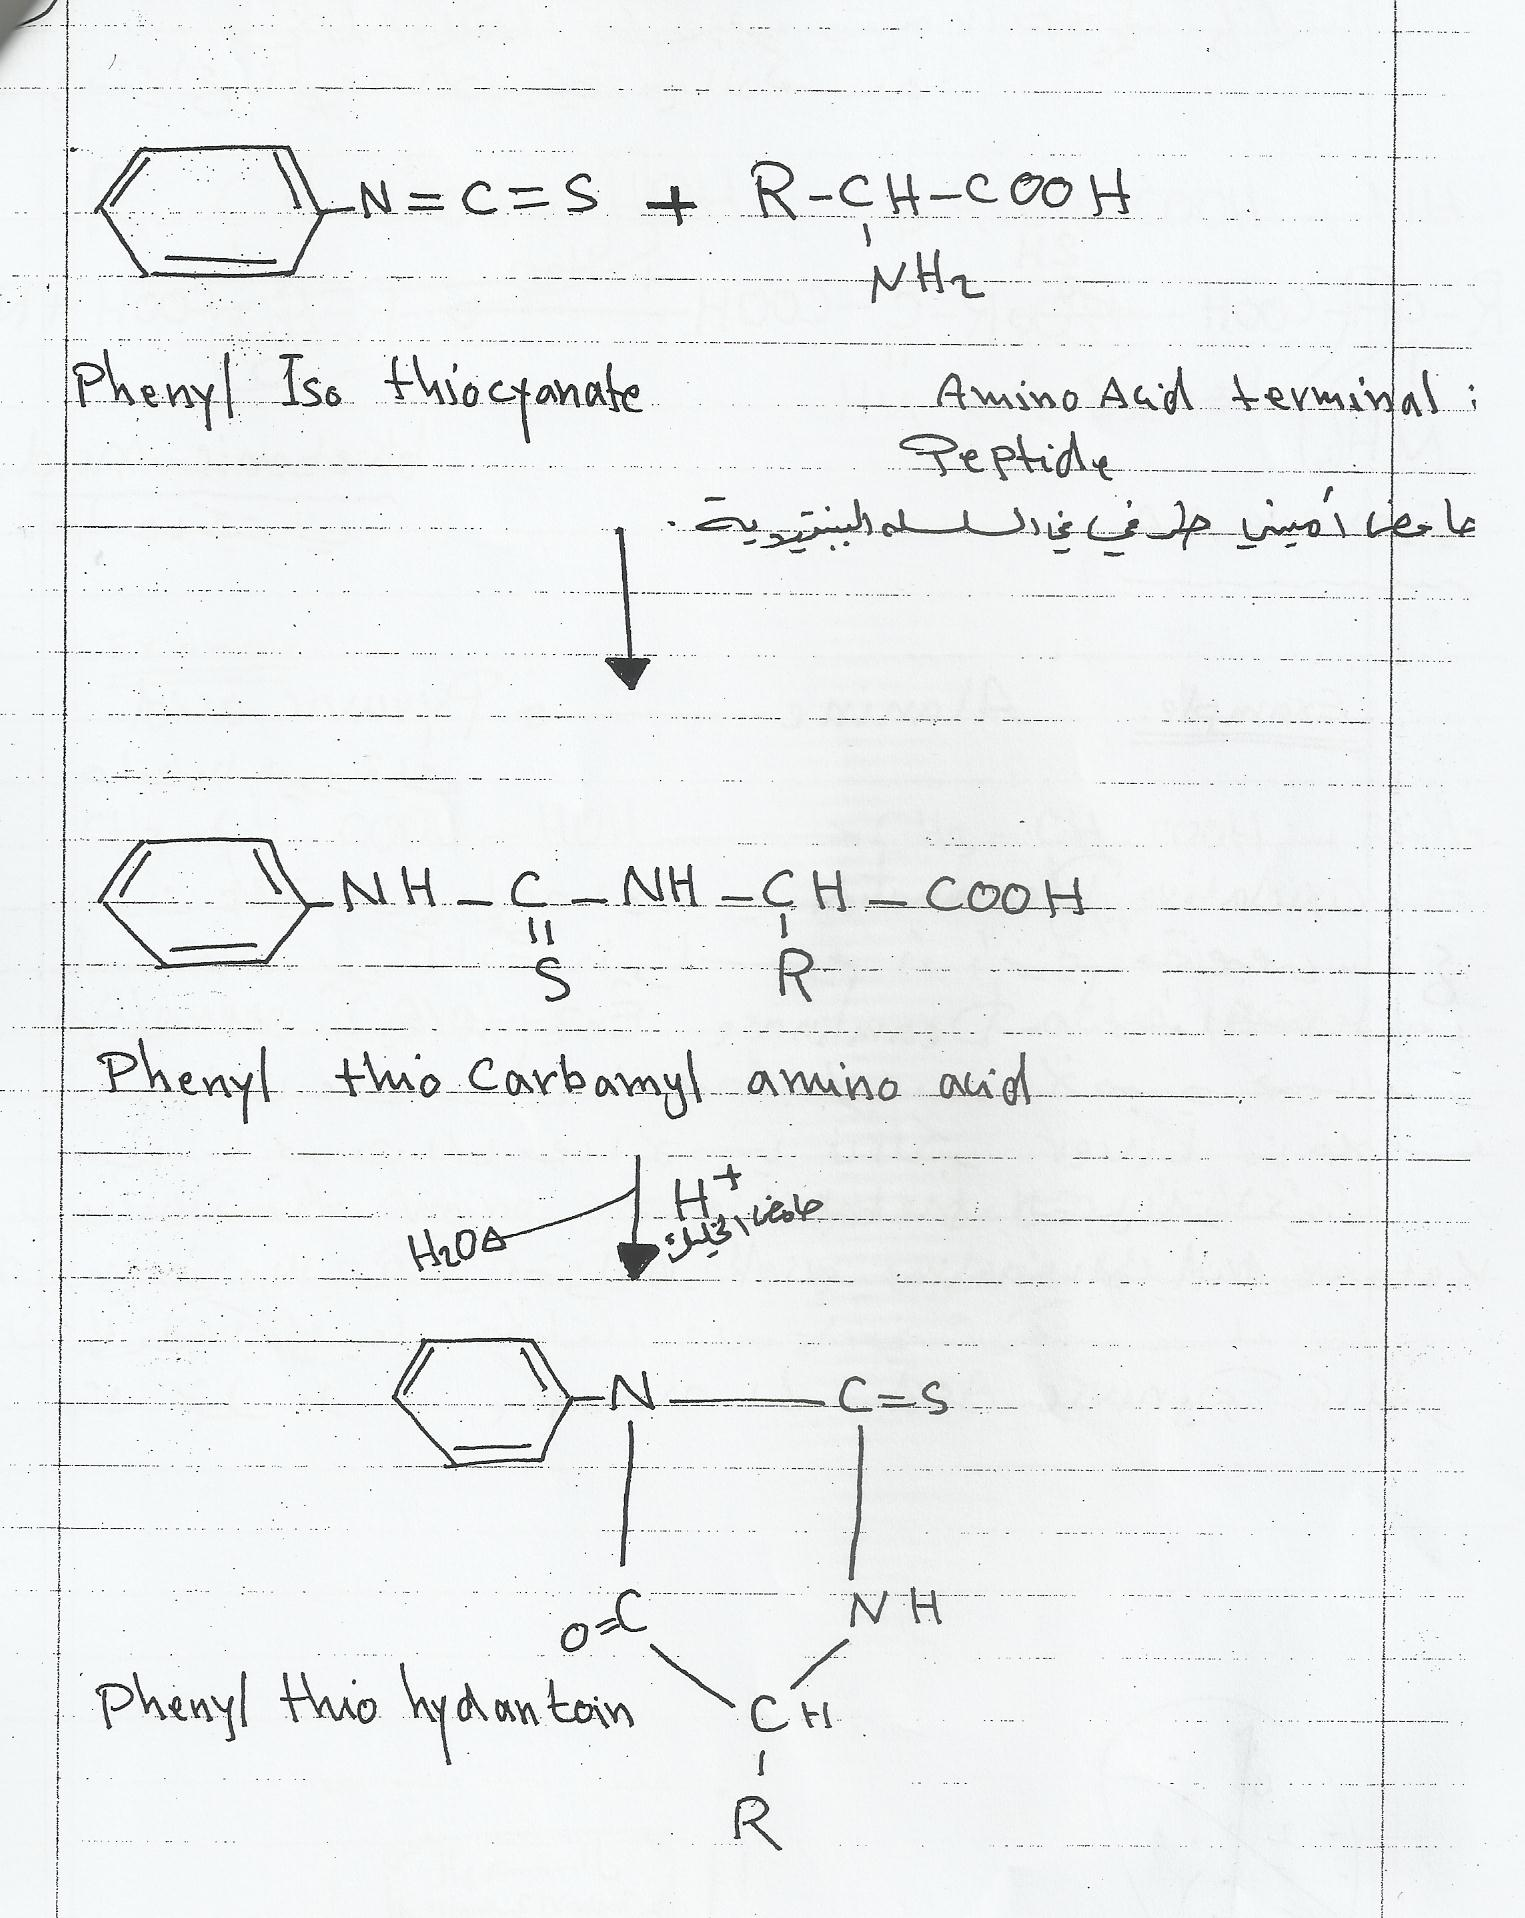 N=C=S + R-CH-COOH
NH2
Phenyl Iso thiocyanate
Amino Acid terminal :
Peptide
حامض أميني طرفي في السلسله الببتيدية .
NH - C - NH - CH - COOH
S R
Phenyl thio Carbamyl amino acid
H+
H2O
حامض الخليك
N C=S
O=C NH
Phenyl thio hydantoin
CH
R